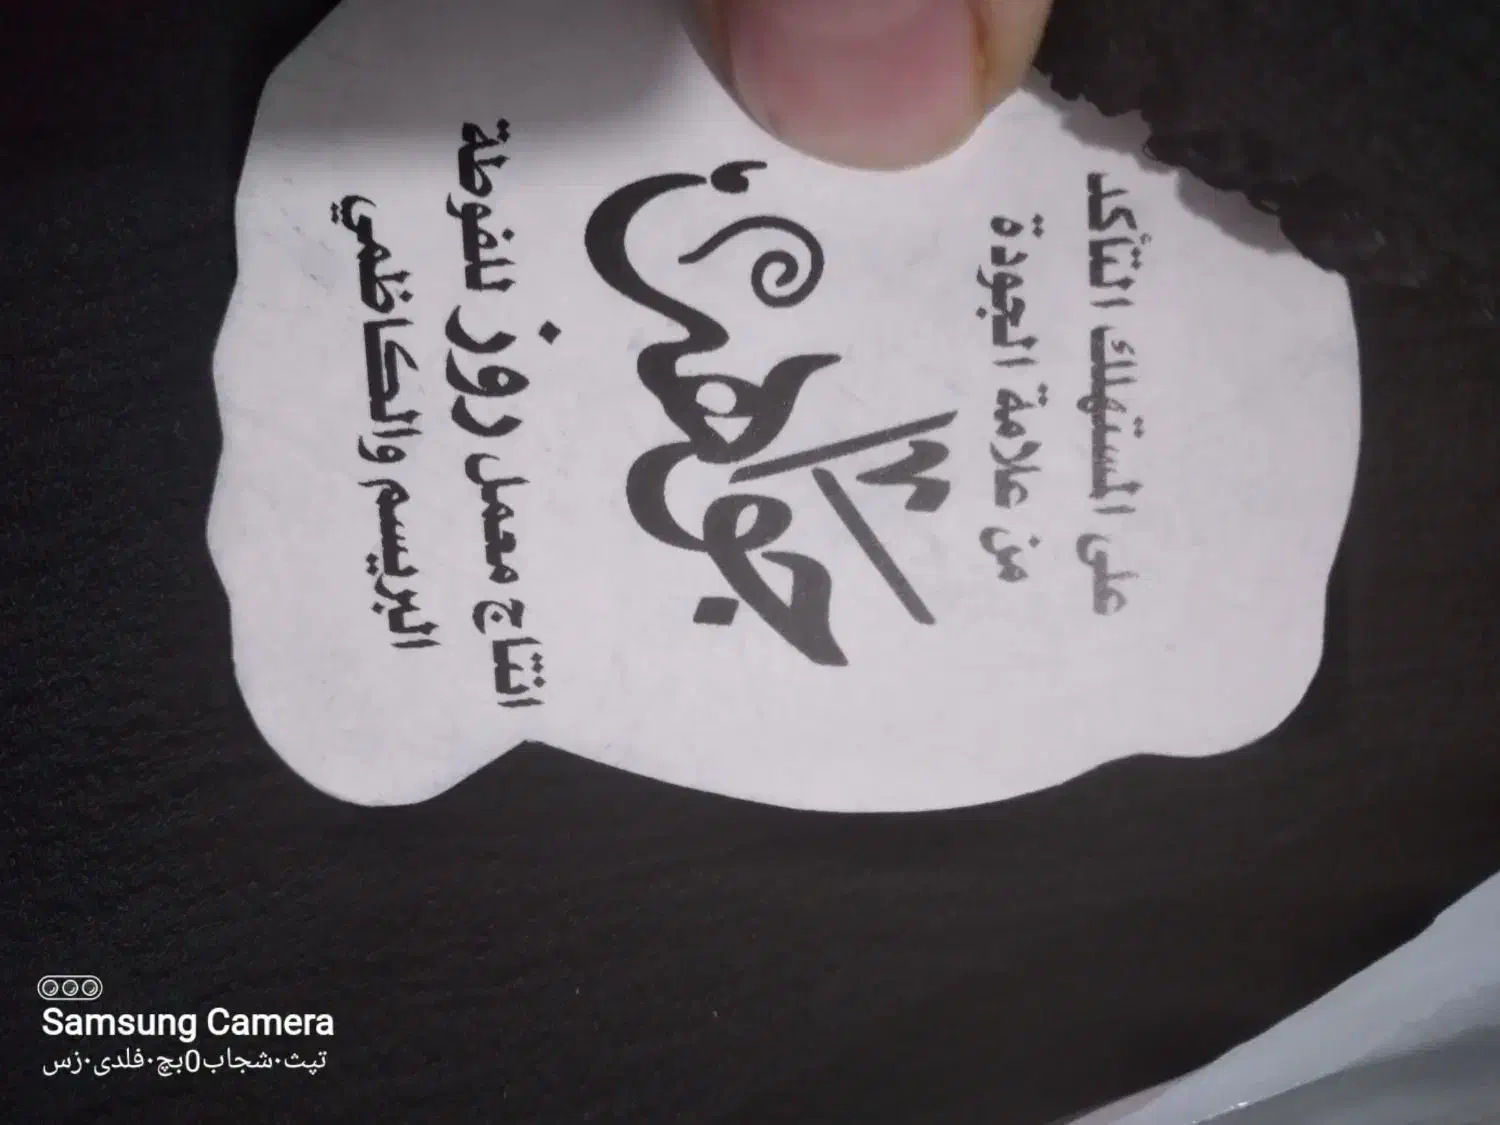 على المستهلك التأكد
من علامة الجودة
جواهري
انتاج معمل روز للفوطة
البريسم والكاظمي
Samsung Camera
تپث·شجاب0بچ·فلدی·زس